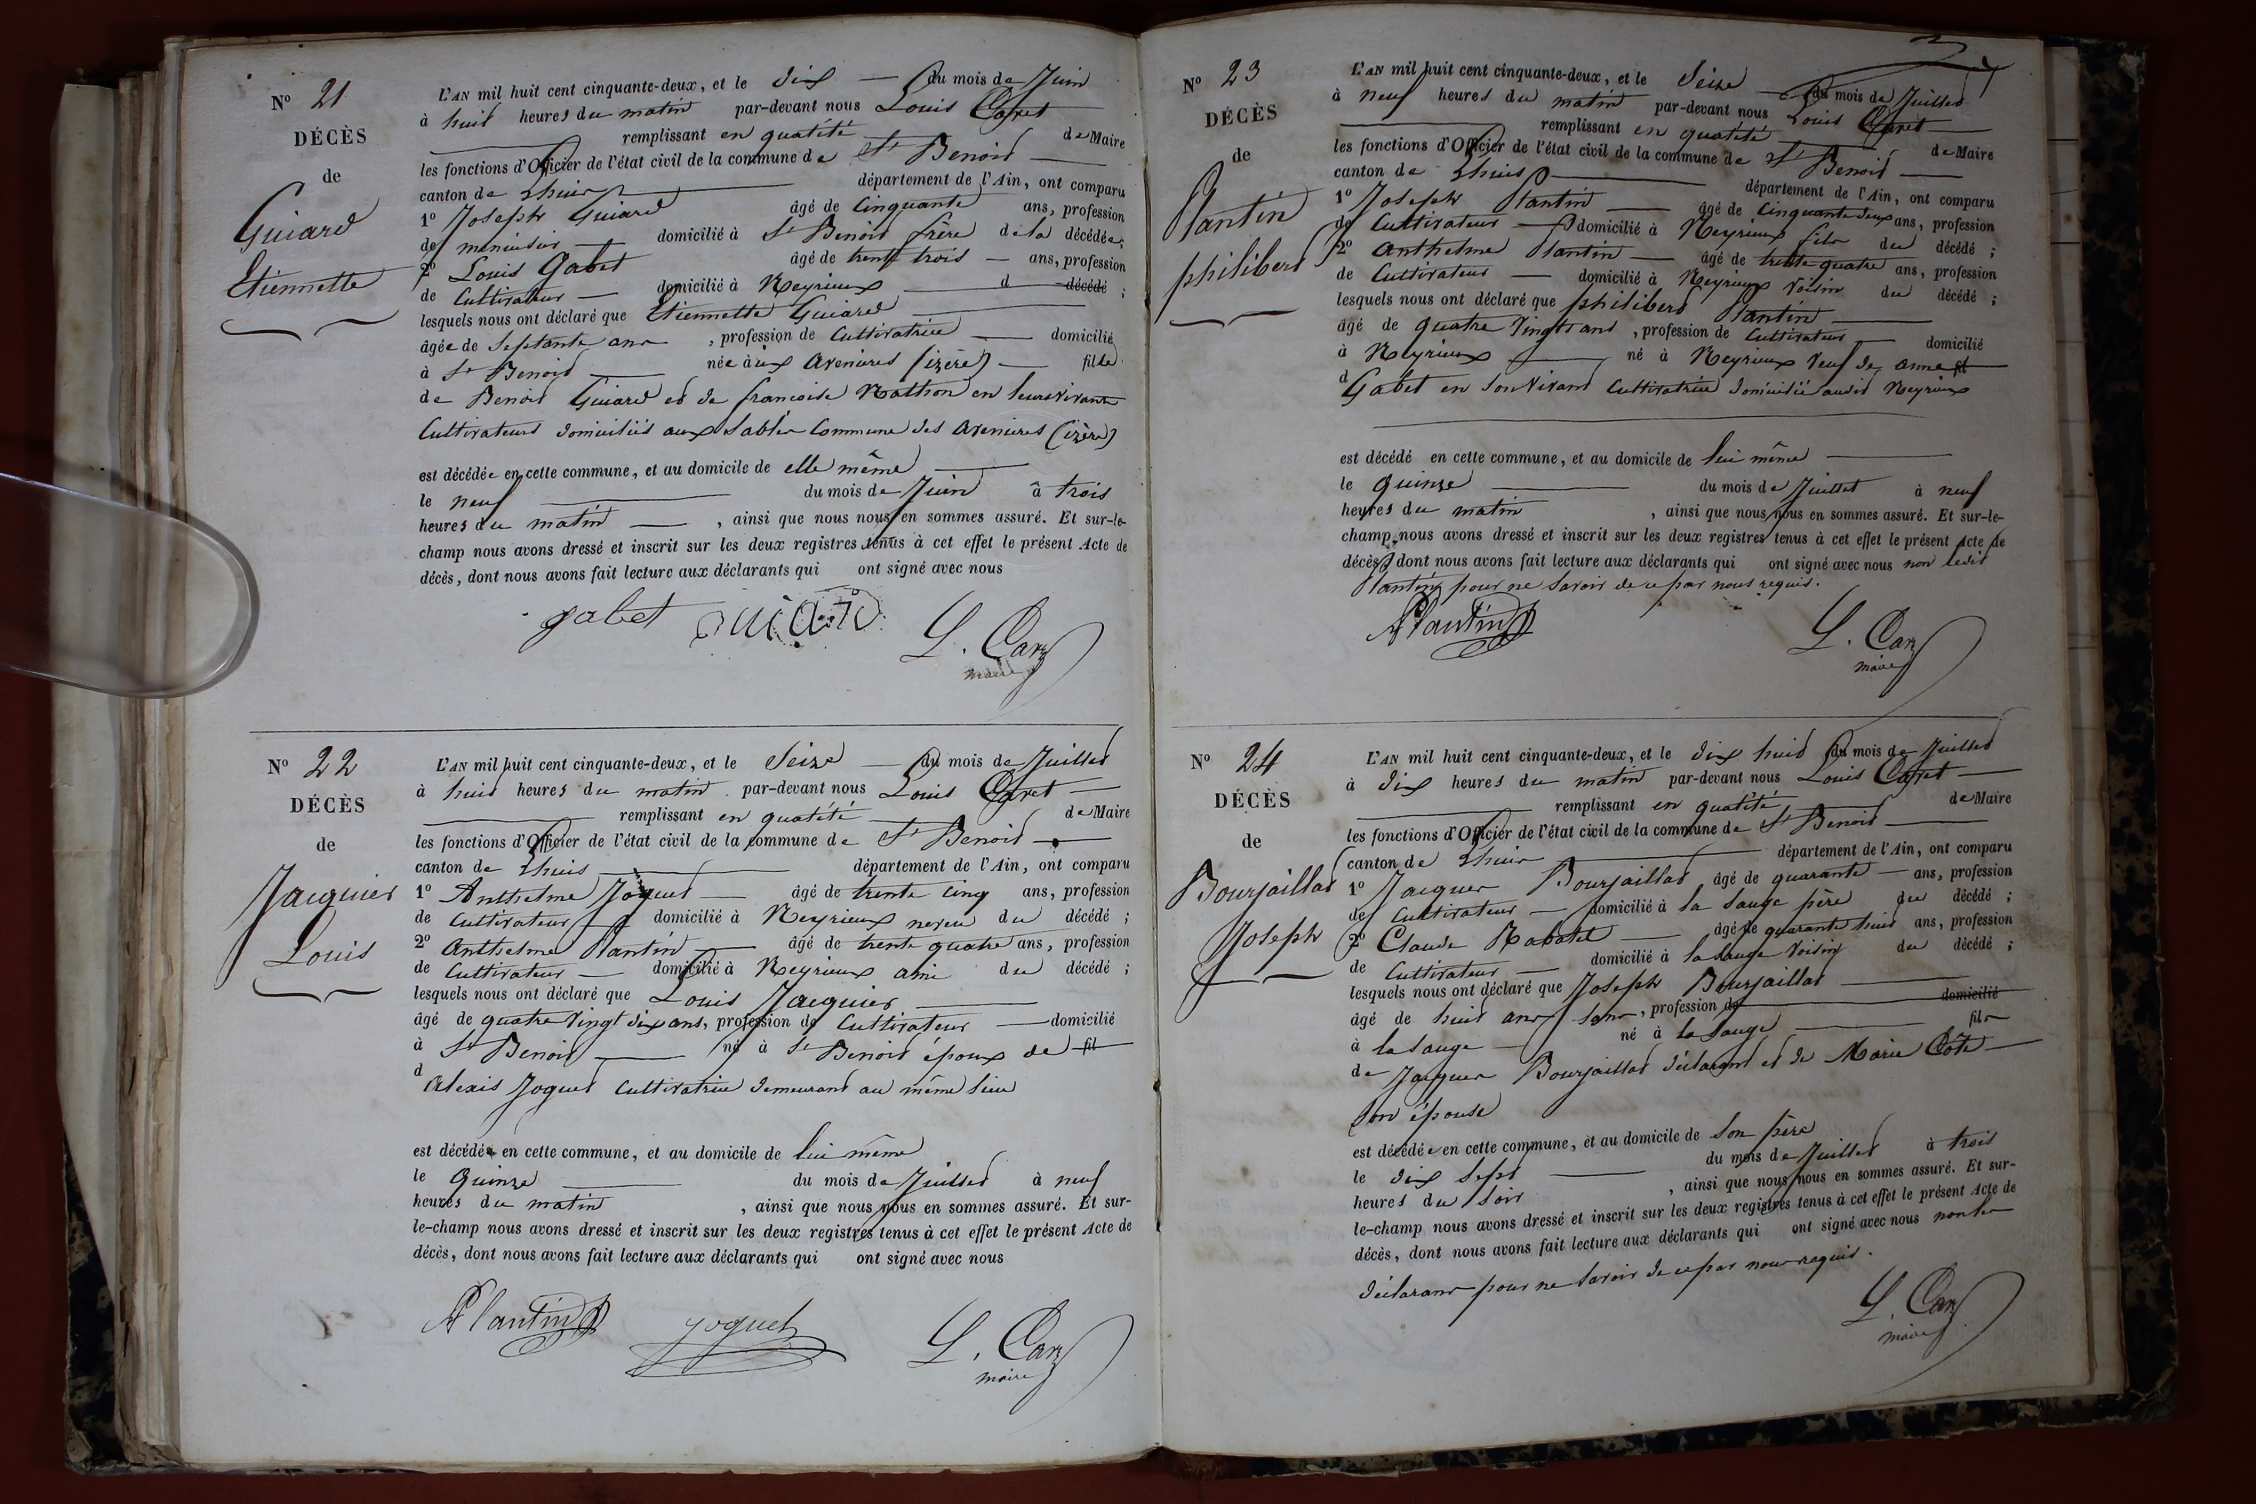 N° 21
DÉCÈS
de
Guiard
Etiennette
L'AN mil huit cent cinquante-deux, et le dix du mois de Juin
à huit heures du matin par-devant nous Louis
remplissant en qualité de Maire
les fonctions d'Officier de l'état civil de la commune de St Benoit
canton de Lhuis département de l'Ain, ont comparu
1° Joseph Guiard âgé de cinquante ans, profession
de menuisier domicilié à St Benoit frère de la décédée;
2° Louis Gabet âgé de trente trois ans, profession
de Cultivateur domicilié à Neyrieux d décédé ;
lesquels nous ont déclaré que Etiennette Guiard
âgée de Septante ans , profession de Cultivatrice domicilié
à St Benoit née aux Avenieres (izère) fille
de Benoit Guiard et de francoise Nathon en leurs vivants
Cultivateurs domiciliés aux Sables Commune des Avenieres (izère)
est décédée en cette commune, et au domicile de elle même
le neuf du mois de Juin à trois
heures du matin , ainsi que nous nous en sommes assuré. Et sur-le-
champ nous avons dressé et inscrit sur les deux registres tenus à cet effet le présent Acte de
décès, dont nous avons fait lecture aux déclarants qui ont signé avec nous
gabet guiard L.
maire
N° 22
DÉCÈS
de
Jacquier
Louis
L'AN mil huit cent cinquante-deux, et le Seize du mois de Juillet
à huit heures du matin par-devant nous Louis
remplissant en qualité de Maire
les fonctions d'Officier de l'état civil de la commune de St Benoit
canton de Lhuis département de l'Ain, ont comparu
1° Anthelme Joguet âgé de trente cinq ans, profession
de Cultivateur domicilié à Neyrieux neveu du décédé ;
2° Anthelme Plantin âgé de trente quatre ans, profession
de Cultivateur domicilié à Neyrieux ami du décédé ;
lesquels nous ont déclaré que Louis Jacquier
âgé de quatre vingt dix ans, profession de Cultivateur domicilié
à St Benoit né à St Benoit époux de fil
d Alexis Joguet Cultivatrice demeurant au même lieu
est décédé en cette commune, et au domicile de lui même
le Quinze du mois de Juillet à neuf
heures du matin , ainsi que nous nous en sommes assuré. Et sur-
le-champ nous avons dressé et inscrit sur les deux registres tenus à cet effet le présent Acte de
décès, dont nous avons fait lecture aux déclarants qui ont signé avec nous
Plantin joguet L.
maire
N° 23
DÉCÈS
de
Plantin
philibert
L'AN mil huit cent cinquante-deux, et le Seize du mois de Juillet
à neuf heures du matin par-devant nous Louis
remplissant en qualité de Maire
les fonctions d'Officier de l'état civil de la commune de St Benoit
canton de Lhuis département de l'Ain, ont comparu
1° Joseph Plantin âgé de cinquante deux ans, profession
de Cultivateur domicilié à Neyrieux fils du décédé ;
2° Anthelme Plantin âgé de trente quatre ans, profession
de Cultivateur domicilié à Neyrieux voisin du décédé ;
lesquels nous ont déclaré que philibert Plantin
âgé de quatre vingts ans , profession de Cultivateur domicilié
à Neyrieux né à Neyrieux veuf de anne fil
d Gabet en son vivant Cultivatrice domiciliée audit Neyrieux
est décédé en cette commune, et au domicile de lui même
le Quinze du mois de Juillet à neuf
heures du matin , ainsi que nous nous en sommes assuré. Et sur-le-
champ nous avons dressé et inscrit sur les deux registres tenus à cet effet le présent Acte de
décès, dont nous avons fait lecture aux déclarants qui ont signé avec nous non ledit
Plantin pour ne savoir de ce par nous requis.
Plantin L.
maire
N° 24
DÉCÈS
de
Bourjaillat
Joseph
L'AN mil huit cent cinquante-deux, et le dix huit du mois de Juillet
à dix heures du matin par-devant nous Louis
remplissant en qualité de Maire
les fonctions d'Officier de l'état civil de la commune de St Benoit
canton de Lhuis département de l'Ain, ont comparu
1° Jacques Bourjaillat âgé de quarante ans, profession
de Cultivateur domicilié à la Sauge père du décédé ;
2° Claude Rabatel âgé de quarante huit ans, profession
de Cultivateur domicilié à la Sauge voisin du décédé ;
lesquels nous ont déclaré que Joseph Bourjaillat
âgé de huit ans sans , profession de domicilié
à la Sauge né à la Sauge fils
de Jacques Bourjaillat déclarant et de Marie Côte
son épouse
est décédé en cette commune, et au domicile de son père
le dix sept du mois de Juillet à trois
heures du soir , ainsi que nous nous en sommes assuré. Et sur-
le-champ nous avons dressé et inscrit sur les deux registres tenus à cet effet le présent Acte de
décès, dont nous avons fait lecture aux déclarants qui ont signé avec nous non les
déclarans pour ne savoir de ce par nous requis.
L.
maire